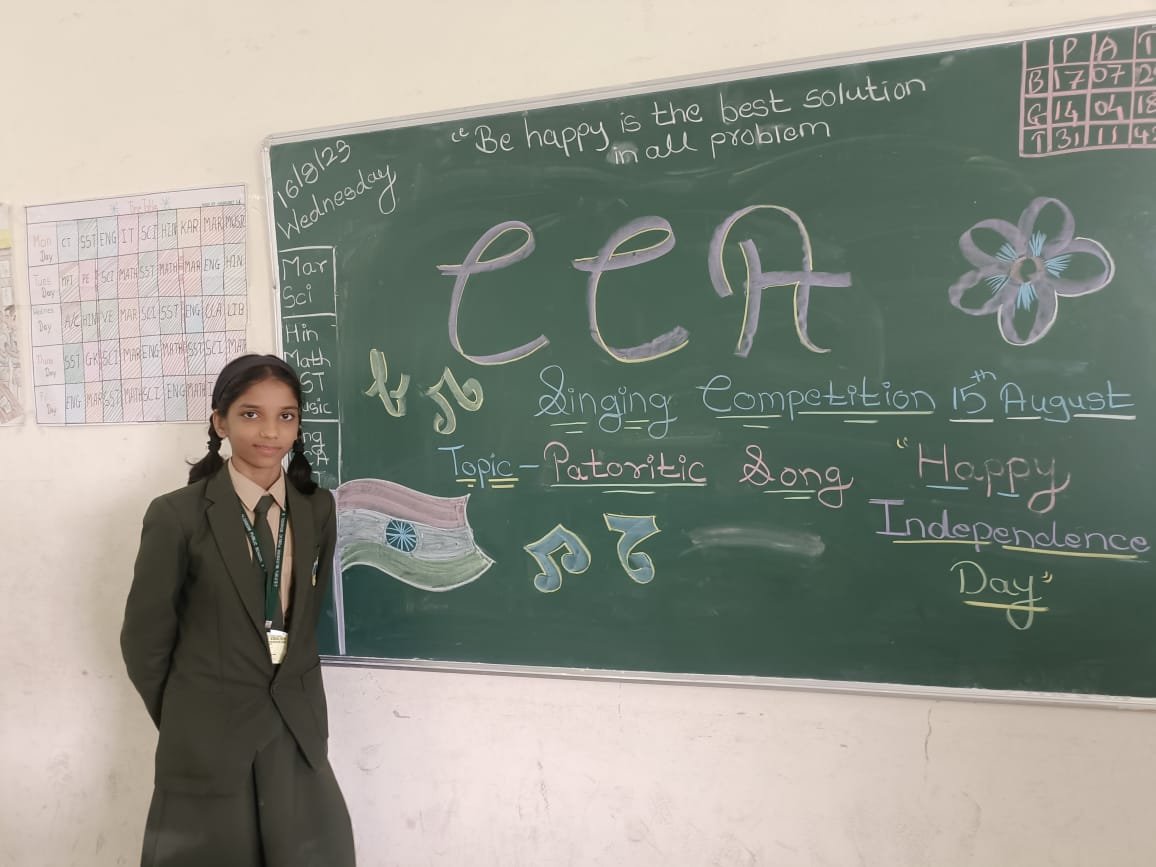 Time Table
Mon Day CT SST ENG IT SCI HIN KAR MAR MUSIC
Tues Day MPT PE SCI MATH SST MATH MAR ENG HIN
Day A/C HIN VE MAR SCI SST ENG CCA LIB
Day SST GK SCI MAR ENG MATH SST SCI MAR
Day ENG MAR SST MATH SCI ENG MATH
16/8/23
Wednesday
Mar
Sci
Hin
Math
"Be happy is the best solution
in all problem
P A T
B 17 07
G 14 04 18
T 31 11
CCA
Singing Competition 15th August
Topic - Patoritic Song
"Happy
Independence
Day"